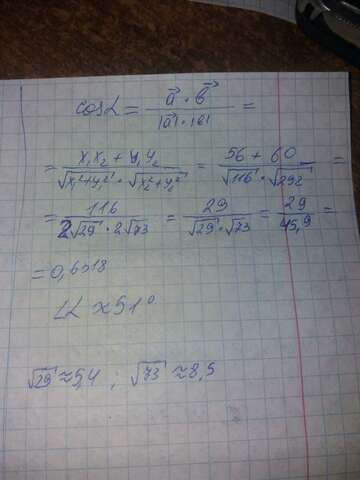 cos α = (a⃗ · b⃗) / (|a⃗| · |b|) =
= (x₁x₂ + y₁y₂) / (√(x₁² + y₁²) · √(x₂² + y₂²)) = (56 + 60) / (√116 · √292) =
= 116 / (2√29 · 2√73) = 29 / (√29 · √73) = 29 / 45,9 =
= 0,6318
∠α ≈ 51°
√29 ≈ 5,4 ; √73 ≈ 8,5